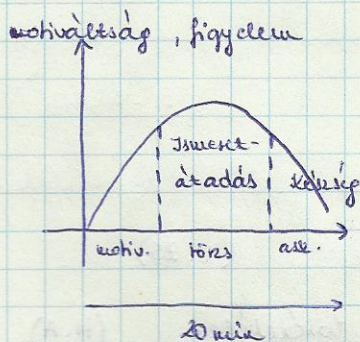 motiváltság, figyelem
Ismeret-
átadás
készség
motiv. törzs
20 min